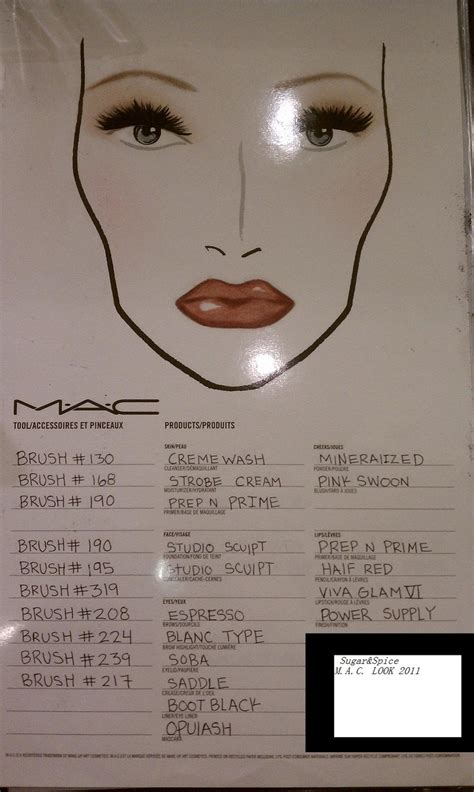 M·A·C
TOOL/ACCESSOIRES ET PINCEAUX
BRUSH # 130
BRUSH # 168
BRUSH # 190
BRUSH # 190
BRUSH # 195
BRUSH #319
BRUSH # 208
BRUSH # 224
BRUSH #239
BRUSH # 217
PRODUCTS/PRODUITS
SKIN/PEAU
CREME WASH
CLEANSER/DÉMAQUILLANT
STROBE CREAM
MOISTURIZER/HYDRATANT
PREP N PRIME
PRIMER/BASE DE MAQUILLAGE
FACE/VISAGE
STUDIO SCULPT
FOUNDATION/FOND DE TEINT
STUDIO SCULPT
CONCEALER/CACHE-CERNES
EYES/YEUX
ESPRESSO
BROWS/SOURCILS
BLANC TYPE
BROW HIGHLIGHT/TOUCHE LUMIÈRE
SOBA
EYELID/PAUPIÈRE
SADDLE
CREASE/CREUX DE L'OEIL
BOOT BLACK
LINER/EYE-LINER
OPULASH
MASCARA
CHEEKS/JOUES
MINERALIZED
POWDER/POUDRE
PINK SWOON
BLUSH/FARD À JOUES
LIPS/LÈVRES
PREP N PRIME
PRIMER/BASE DE MAQUILLAGE
HALF RED
PENCIL/CRAYON À LÈVRES
VIVA GLAM VI
LIPSTICK/ROUGE À LÈVRES
POWER SUPPLY
FINISH/FINITION
Sugar&Spice
M.A.C. LOOK 2011